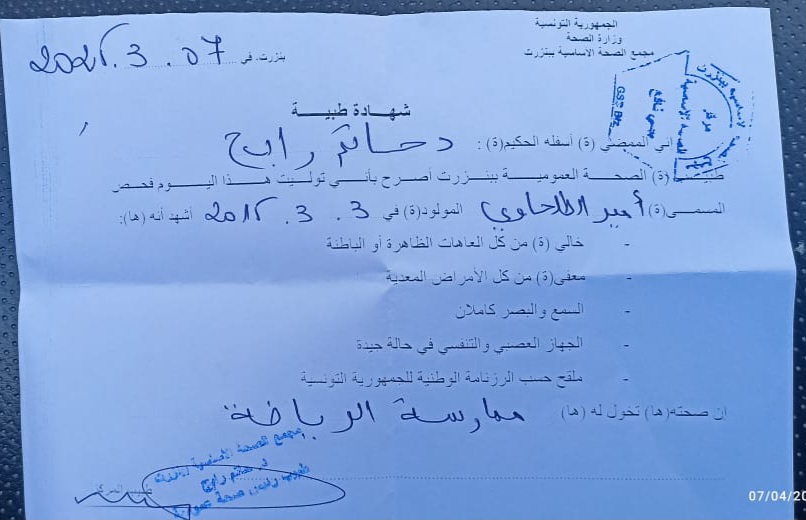 الجمهورية التونسية
وزارة الصحة
مجمع الصحة الاساسية ببنزرت
بنزرت، في 07 . 3 .
شهادة طبية
اني الممضي (ة) أسفله الحكيم(ة) : د حاتم رابح
طبيب (ة) الصحة العمومية ببنزرت أصرح بأني توليت هذا اليوم فحص
المسمى(ة) أمير المولود(ة) في 3 . 3 . أشهد أنه (ها):
- خالي (ة) من كل العاهات الظاهرة أو الباطنة
- معفى(ة) من كل الأمراض المعدية
- السمع والبصر كاملان
- الجهاز العصبي والتنفسي في حالة جيدة
- ملقح حسب الرزنامة الوطنية للجمهورية التونسية
ان صحته(ها) تخول له (ها) ممارسة الرياضة
طبيب المركز
مجمع الصحة الاساسية ببنزرت
د. حاتم رابح
طبيب رئيس صحة
07/04/20